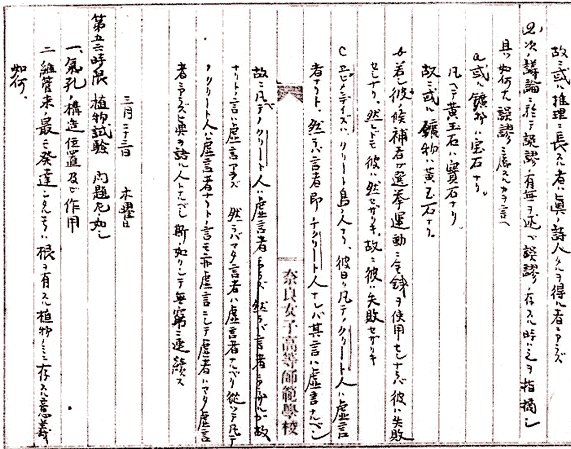 故ニ或ル推理ニ長ズル者ハ眞ノ詩人タルヲ得ル者ニアラズ
四、次ノ議論ニ於テ誤謬ノ有無ヲ述ベ誤謬ノ存スル時ハ之ヲ指摘シ
其如何ナル誤謬ニ属スルカヲ言ヘ
a 或ル鑛物ハ宝石ナリ。
凡ベテ黄玉石ハ寳石ナリ
故ニ或ル鑛物ハ黄玉石ナリ。
b 若シ彼ノ候補者ガ選挙運動ニ金錢ヲ使用セシナラバ彼ハ失敗
セシナリ。然レドモ彼ハ然セザリキ。故ニ彼ハ失敗セザリキ
C エピメニデスハクリート島ノ人ナリ、彼曰ク凡テノクリート人ハ虚言
者ナリト、然ラバ言者即チクリート人ナレバ其言ハ虚言ナルベシ
奈良女子高等師範學校
故ニ凡テノクリート人ハ虚言者ニアラズ 然ラバ言者
ナリト言ハ虚言ニアラズ 然ラバマタ言者ハ虚言者ナルベク從ツテ凡テ
ノクリート人ハ虚言者ナリトノ言モ亦虚言ニシテ言者ハマタ虚言
者ニアラズ 語ル人トナルベシ 斯ノ如クシテ無窮ニ連續ス
三月二十三日 木曜日
第五六時限 植物試驗 問題左ノ如シ
一、氣孔ノ構造位置及ビ作用
二、維管束ノ最モ發達シタルモノハ根ヲ有スル植物ニノミ存スル意義
如何、